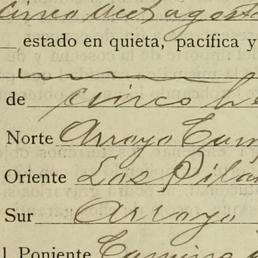 cinco de Agosto
estado en quieta, pacífica y
de cinco
Norte Arroyo
Oriente Los Pila
Sur Arroyo
l Poniente Camino